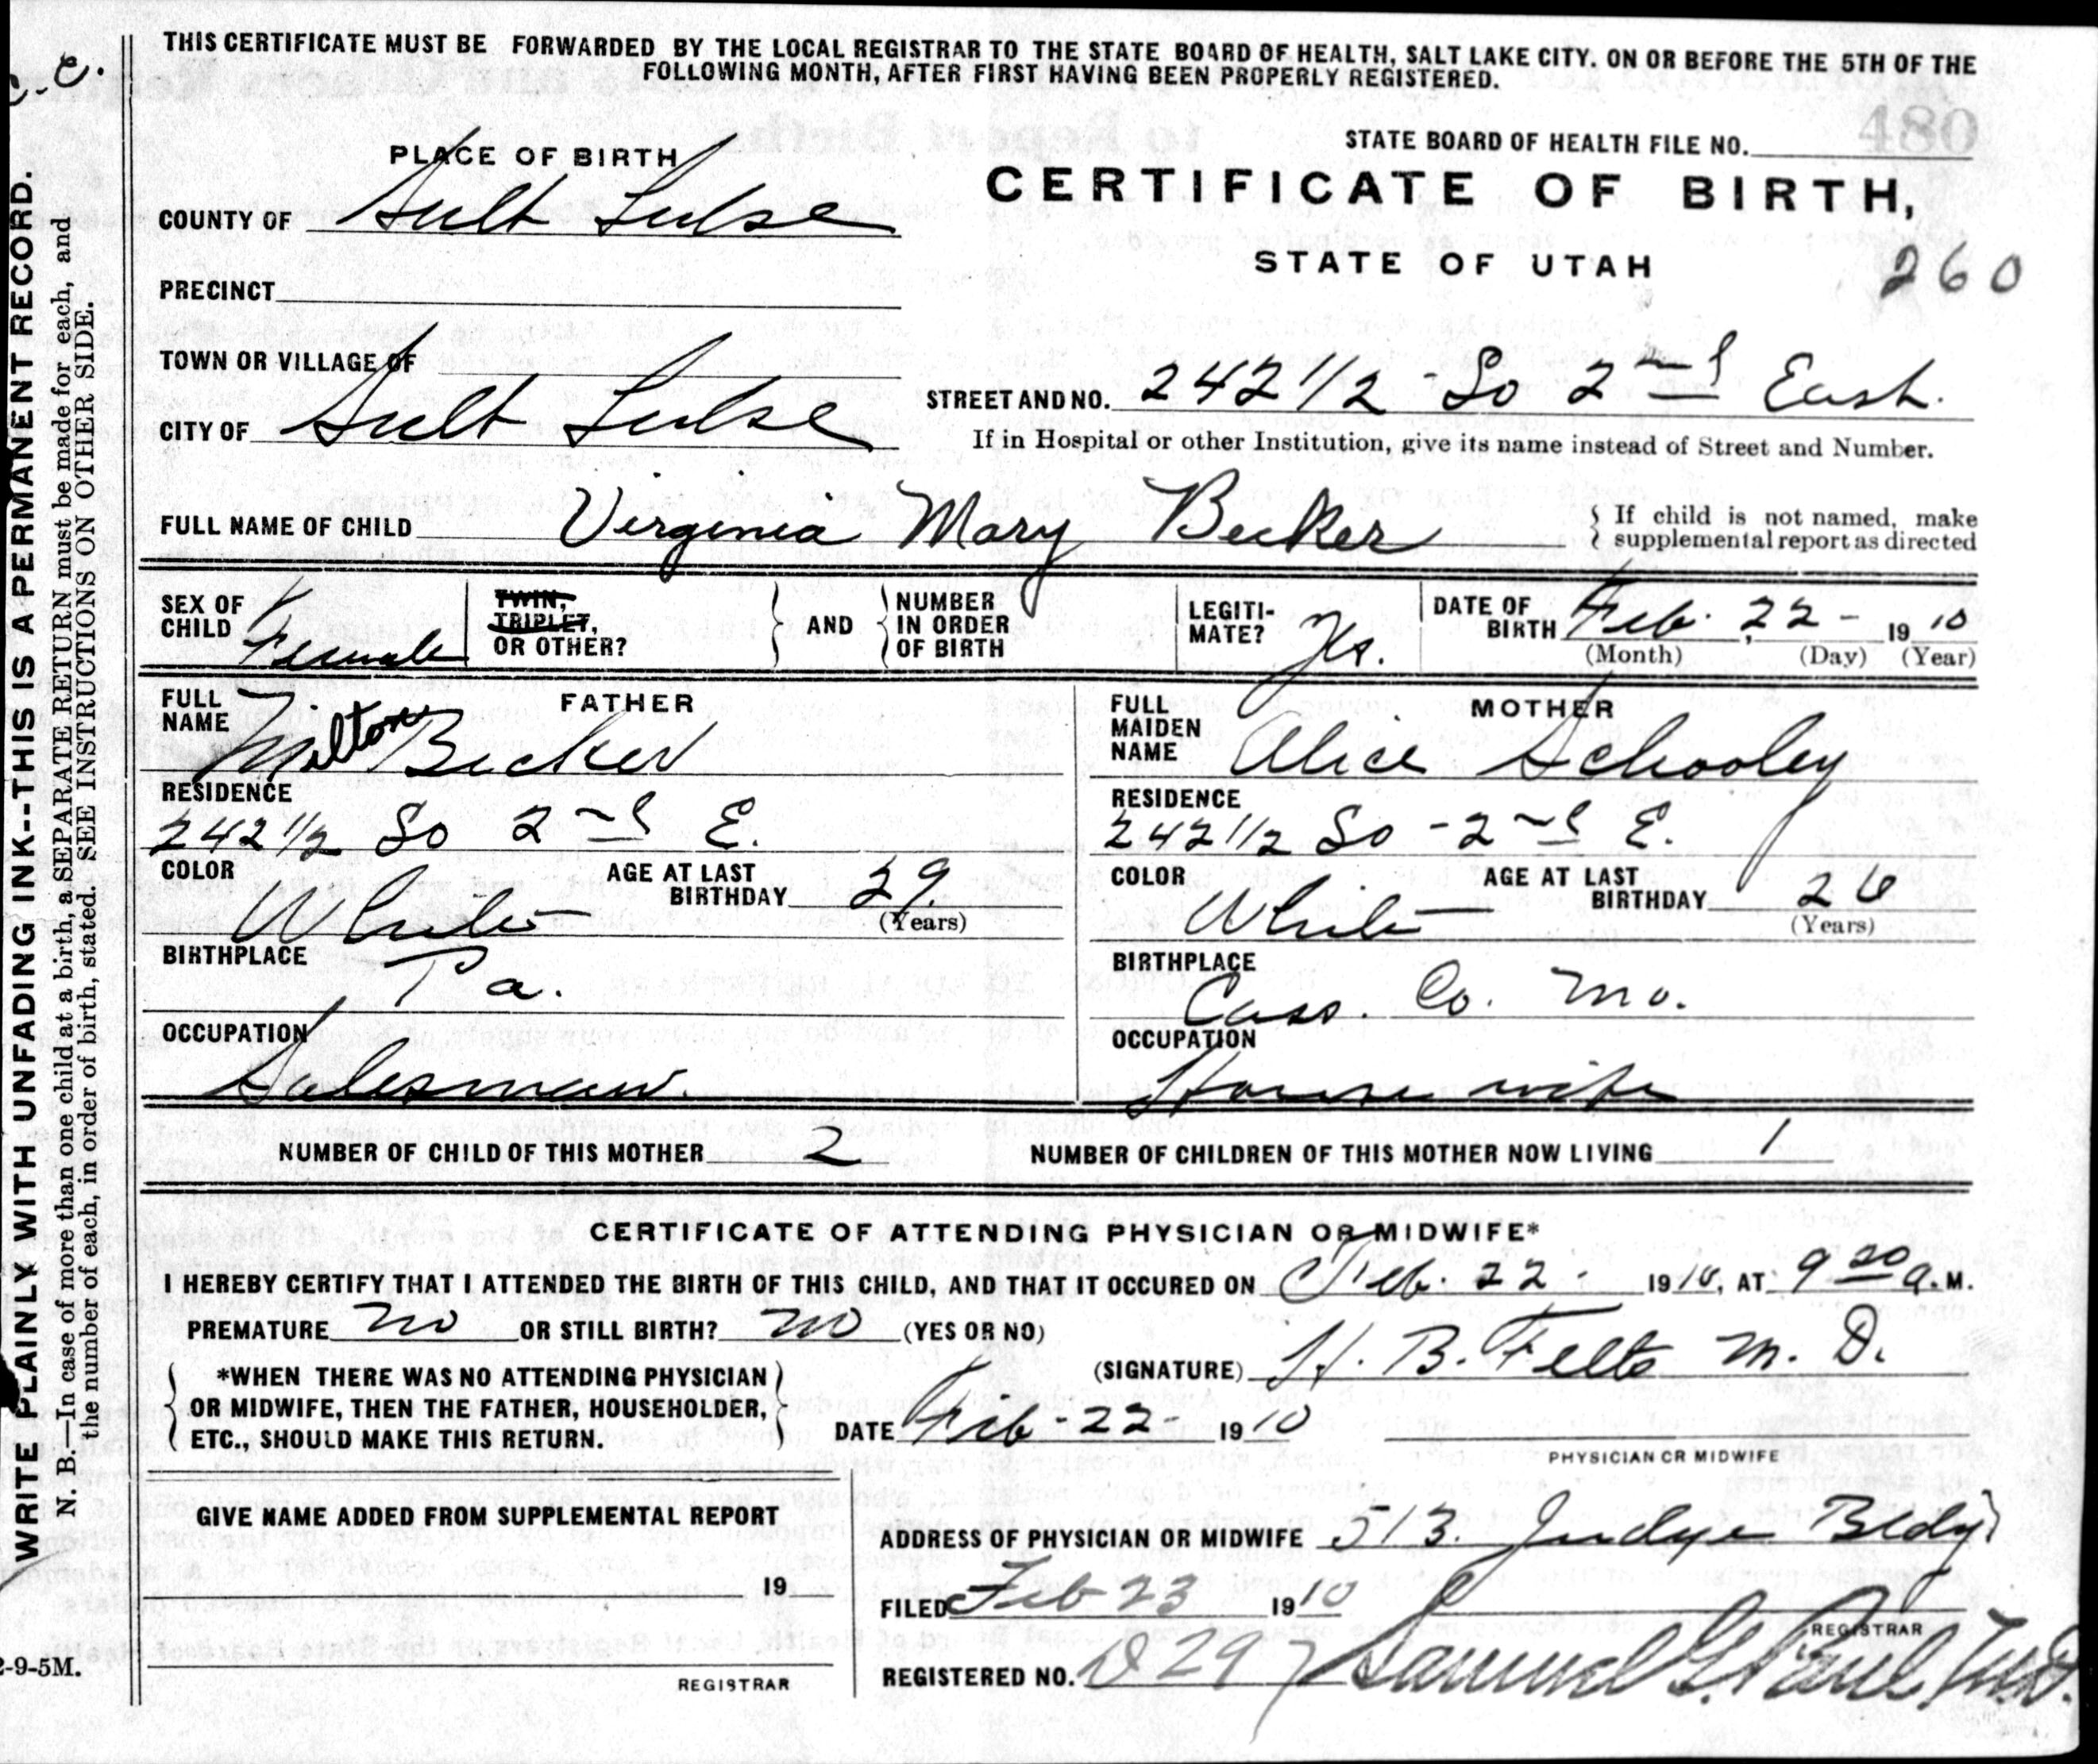 THIS CERTIFICATE MUST BE FORWARDED BY THE LOCAL REGISTRAR TO THE STATE BOARD OF HEALTH, SALT LAKE CITY. ON OR BEFORE THE 5TH OF THE
FOLLOWING MONTH, AFTER FIRST HAVING BEEN PROPERLY REGISTERED.
WRITE PLAINLY WITH UNFADING INK--THIS IS A PERMANENT RECORD.
N. B.—In case of more than one child at a birth, a SEPARATE RETURN must be made for each, and
the number of each, in order of birth, stated. SEE INSTRUCTIONS ON OTHER SIDE.
STATE BOARD OF HEALTH FILE NO. 480
PLACE OF BIRTH
CERTIFICATE OF BIRTH,
COUNTY OF Salt Lake
STATE OF UTAH 260
PRECINCT
TOWN OR VILLAGE OF
STREET AND NO. 242 1/2 - So 2nd East.
CITY OF Salt Lake
If in Hospital or other Institution, give its name instead of Street and Number.
FULL NAME OF CHILD Virginia Mary Becker
{ If child is not named, make
supplemental report as directed
SEX OF CHILD Female
TWIN, TRIPLET, OR OTHER? } AND { NUMBER IN ORDER OF BIRTH
LEGITI-MATE? Yes.
DATE OF BIRTH Feb. 22 - 1910
(Month) (Day) (Year)
FATHER
FULL NAME Milton Becker
RESIDENCE
242 1/2 So 2nd E.
COLOR White AGE AT LAST BIRTHDAY 29. (Years)
BIRTHPLACE Pa.
OCCUPATION
Salesman
MOTHER
FULL MAIDEN NAME Alice Schooley
RESIDENCE
242 1/2 So - 2nd E.
COLOR White AGE AT LAST BIRTHDAY 26 (Years)
BIRTHPLACE
Cass. Co. Mo.
OCCUPATION
House wife
NUMBER OF CHILD OF THIS MOTHER 2 NUMBER OF CHILDREN OF THIS MOTHER NOW LIVING 1
CERTIFICATE OF ATTENDING PHYSICIAN OR MIDWIFE*
I HEREBY CERTIFY THAT I ATTENDED THE BIRTH OF THIS CHILD, AND THAT IT OCCURED ON Feb. 22 - 1910, AT 9 a. M.
PREMATURE no OR STILL BIRTH? no (YES OR NO)
(SIGNATURE) H. B. Felts M. D.
*WHEN THERE WAS NO ATTENDING PHYSICIAN
OR MIDWIFE, THEN THE FATHER, HOUSEHOLDER,
ETC., SHOULD MAKE THIS RETURN.
DATE Feb - 22 - 1910
PHYSICIAN OR MIDWIFE
GIVE NAME ADDED FROM SUPPLEMENTAL REPORT
19
REGISTRAR
ADDRESS OF PHYSICIAN OR MIDWIFE 513. Judge Bldg
FILED Feb 23 1910
REGISTRAR
REGISTERED NO. 297 Samuel G. Paul
2-9-5M.